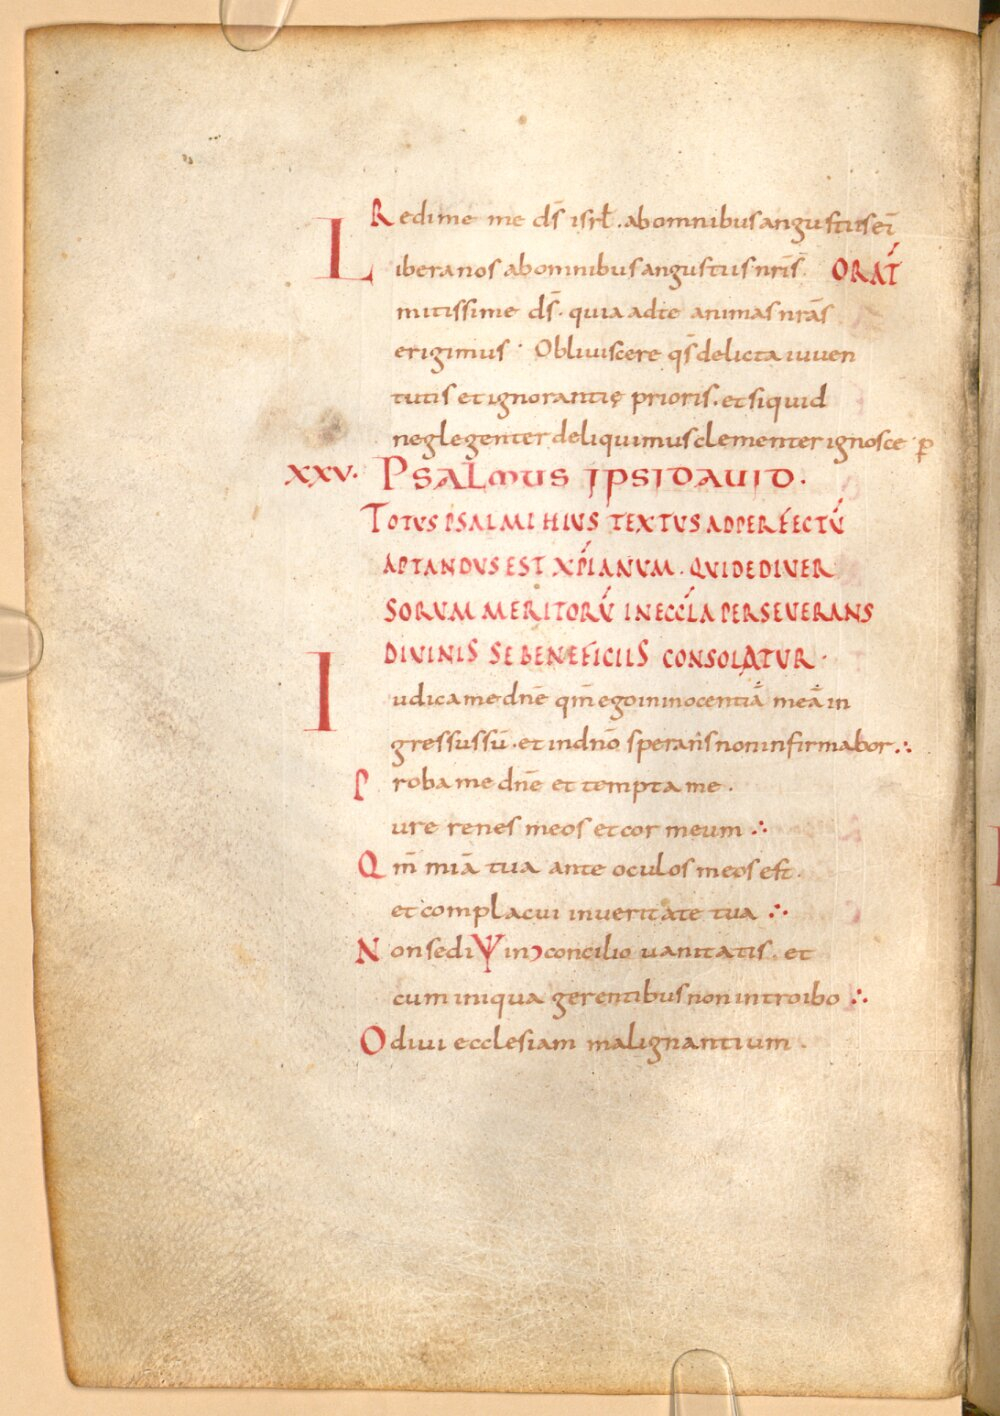 Redime me ds̄ isrł. ab omnibus angustiis ei᷎
Libera nos ab omnibus angustiis nr̄is. ORAT̄
mitissime ds̄. quia ad te animas nr̄as
erigimus. Obliuiscere qs̄ delicta iuuen
tutis et ignorantię prioris. et siquid
neglegenter deliquimus clementer ignosce. ꝑ
XXV. PSALMUS IPSI DAUID.
TOTUS PSALMI HIUS TEXTUS AD PERFECTŪ
APTANDUS EST XP̄IANUM. QUI DE DIUER
SORUM MERITORŪ IN ECCL̄A PERSEUERANS
DIUINIS SE BENEFICIIS CONSOLATUR.
Iudica me dn̄e qm̄ ego in innocentiā meā in
gressus sū. et in dn̄o sperans non infirmabor ∴
Proba me dn̄e et tempta me.
ure renes meos et cor meum ∴
Qm̄ mīa tua ante oculos meos est.
et complacui in ueritate tua ∴
Non sedi Ψ in concilio uanitatis. et
cum iniqua gerentibus non introibo ∴
Odiui ecclesiam malignantium.